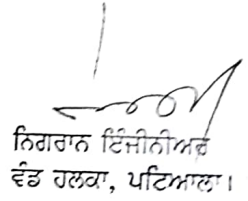 ਨਿਗਰਾਨ ਇੰਜੀਨੀਅਰ
ਵੰਡ ਹਲਕਾ, ਪਟਿਆਲਾ।